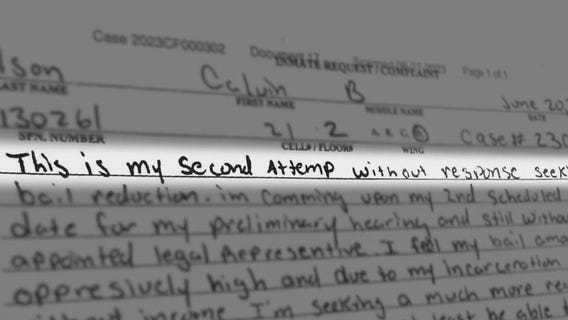 Case 2023CF000302 Document 17 Page 1 of 1
INMATE REQUEST/COMPLAINT
lson Calvin B June 20
LAST NAME FIRST NAME MIDDLE NAME DATE
130261 21 . 2 A B C D Case # 230
SPN. NUMBER CELLS/FLOORS WING
This is my second Attemp without response seeki
bail reduction. im comming upon my 2nd scheduled
date for my preliminary hearing and still withou
appointed legal Representive. I feel my bail amo
oppresively high and due to my Incarceration
without income I'm seeking a much more rea
least be able t